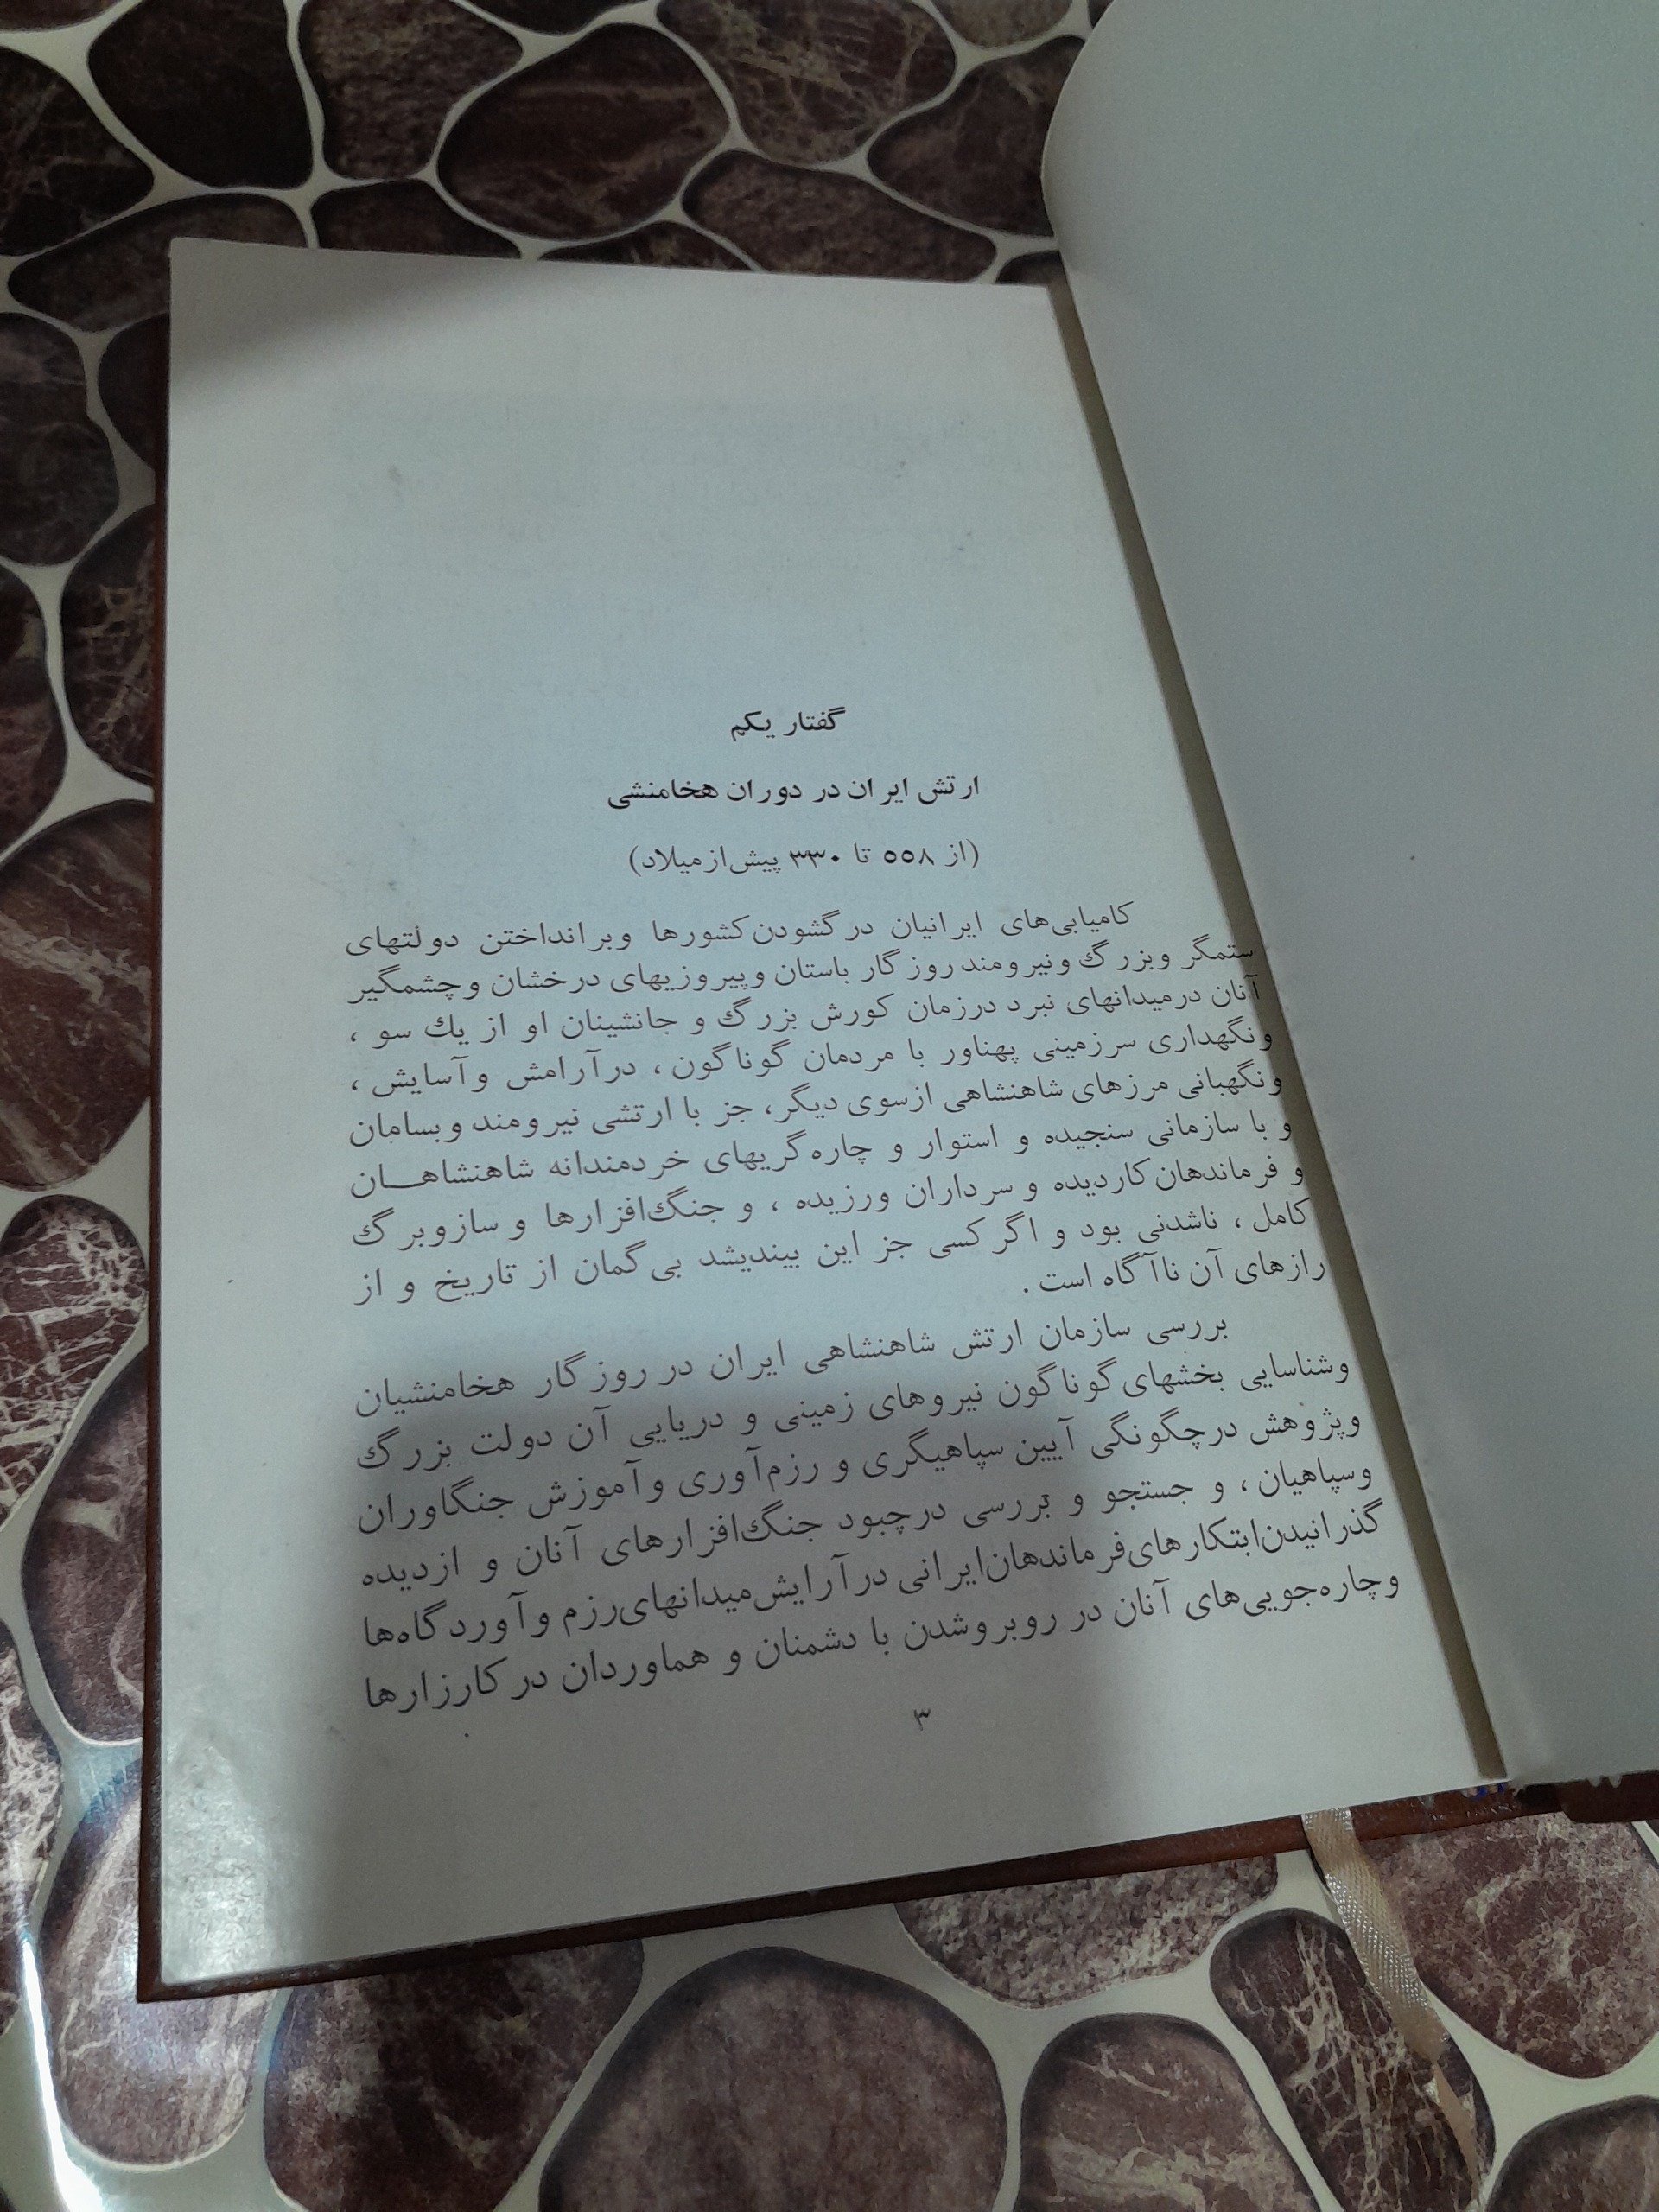 گفتار یکم
ارتش ایران در دوران هخامنشی
(از ۵۵۸ تا ۳۳۰ پیش‌از‌میلاد)
کامیابی‌های ایرانیان در گشودن کشورها وبرانداختن دولتهای
ستمگر وبزرگ ونیرومند روزگار باستان وپیروزیهای درخشان وچشمگیر
آنان درمیدانهای نبرد درزمان کورش بزرگ و جانشینان او از یك سو ،
ونگهداری سرزمینی پهناور با مردمان گوناگون، درآرامش وآسایش ،
ونگهبانی مرزهای شاهنشاهی ازسوی دیگر، جز با ارتشی نیرومند وبسامان
و با سازمانی سنجیده و استوار و چاره‌گریهای خردمندانه شاهنشاهـان
و فرماندهان کاردیده و سرداران ورزیده ، و جنگ‌افزارها و سازوبرگ
کامل ، ناشدنی بود و اگر کسی جز این بیندیشد بی‌گمان از تاریخ و از
رازهای آن ناآگاه است .
بررسی سازمان ارتش شاهنشاهی ایران در روزگار هخامنشیان
وشناسایی بخشهای گوناگون نیروهای زمینی و دریایی آن دولت بزرگ
وپژوهش درچگونگی آیین سپاهیگری و رزم‌آوری وآموزش جنگاوران
وسپاهیان ، و جستجو و بررسی درچبود جنگ‌افزارهای آنان و ازدیده
گذرانیدن ابتکارهای فرماندهان ایرانی درآرایش میدانهای رزم وآوردگاه‌ها
وچاره‌جویی‌های آنان در روبروشدن با دشمنان و هماوردان در کارزارها
۳